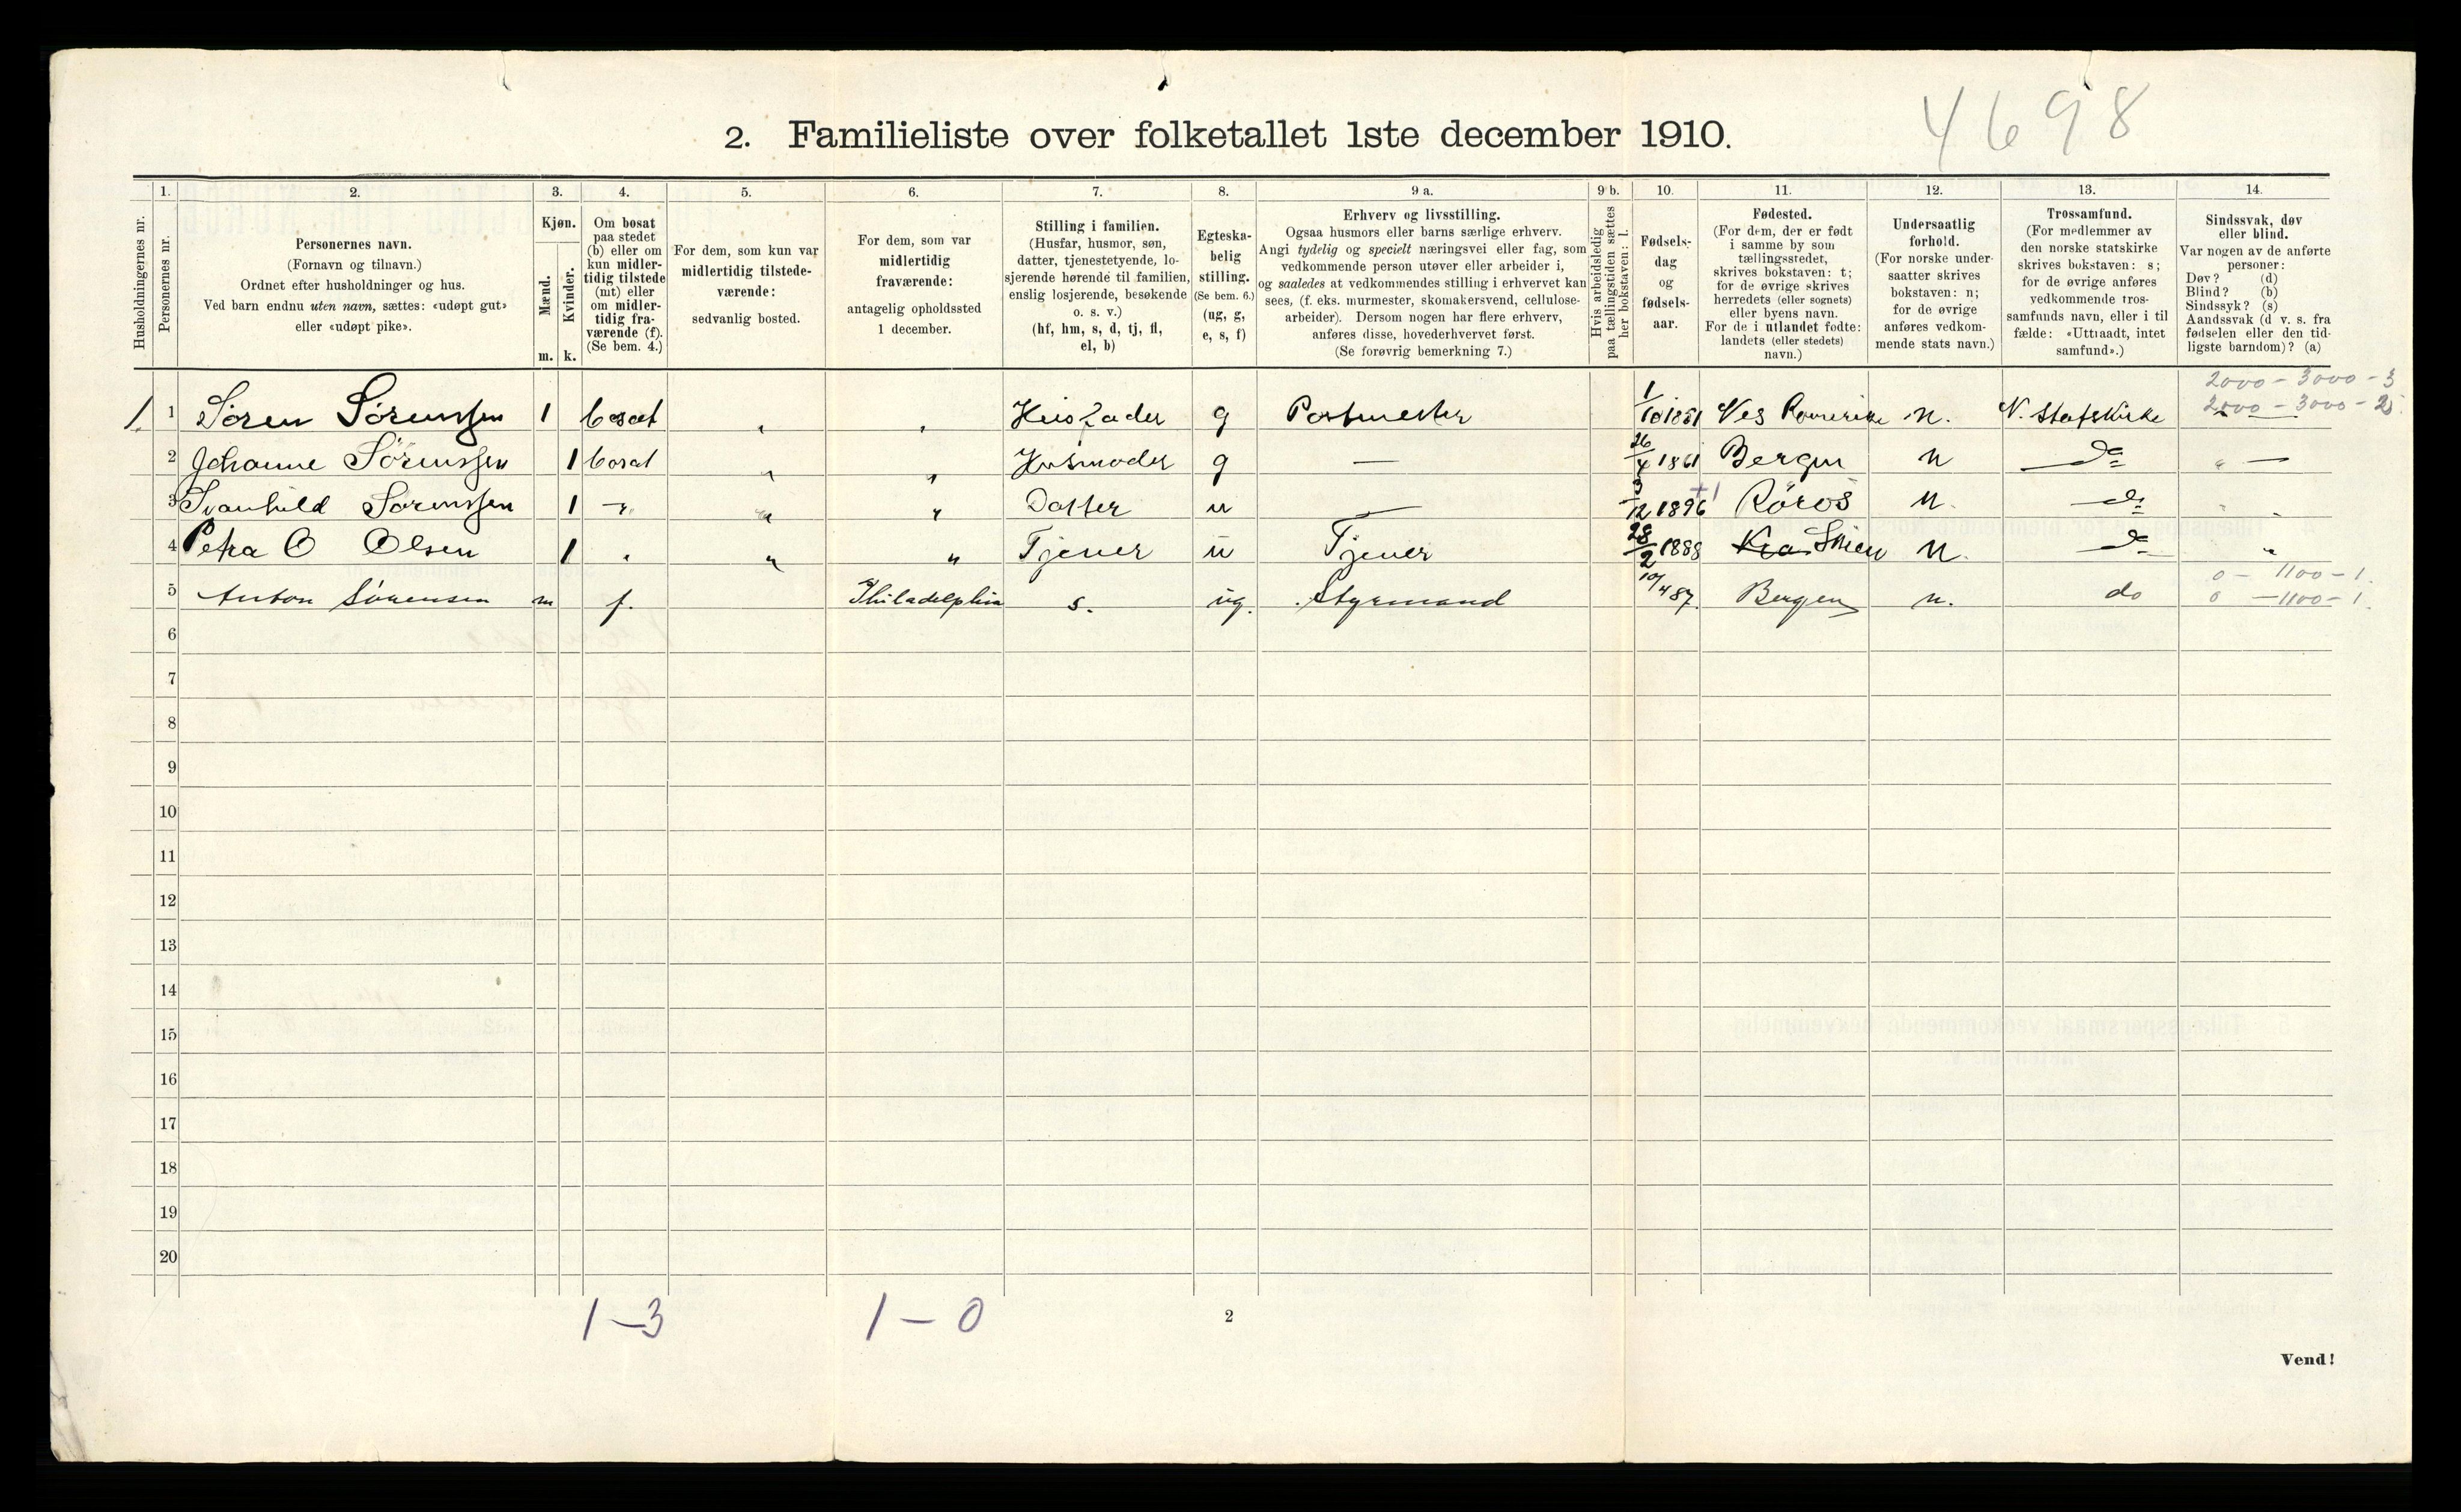 4698
2. Familieliste over folketallet 1ste december 1910.
1. 2. 3. 4. 5. 6. 7. 8. 9 a. 9 b. 10. 11. 12. 13. 14.
Husholdningernes nr.
Personernes nr.
Personernes navn.
(Fornavn og tilnavn.)
Ordnet efter husholdninger og hus.
Ved barn endnu uten navn, sættes: «udøpt gut»
eller «udøpt pike».
Kjøn.
Mænd.
Kvinder.
m. k.
Om bosat
paa stedet
(b) eller om
kun midler-
tidig tilstede
(mt) eller
om midler-
tidig fra-
værende (f).
(Se bem. 4.)
For dem, som kun var
midlertidig tilstede-
værende:
sedvanlig bosted.
For dem, som var
midlertidig
fraværende:
antagelig opholdssted
1 december.
Stilling i familien.
(Husfar, husmor, søn,
datter, tjenestetyende, lo-
sjerende hørende til familien,
enslig losjerende, besøkende
o. s. v.)
(hf, hm, s, d, tj, fl,
el, b)
Egteska-
belig
stilling.
(Se bem. 6.)
(ug, g,
e, s, f)
Erhverv og livsstilling.
Ogsaa husmors eller barns særlige erhverv.
Angi tydelig og specielt næringsvei eller fag, som
vedkommende person utøver eller arbeider i,
og saaledes at vedkommendes stilling i erhvervet kan
sees, (f. eks. murmester, skomakersvend, cellulose-
arbeider). Dersom nogen har flere erhverv,
anføres disse, hovederhvervet først.
(Se forøvrig bemerkning 7.)
Hvis arbeidsledig
paa tællingstiden sættes
her bokstaven: l.
Fødsels-
dag
og
fødsels-
aar.
Fødested.
(For dem, der er født
i samme by som
tællingsstedet,
skrives bokstaven: t;
for de øvrige skrives
herredets (eller sognets)
eller byens navn.
For de i utlandet fødte:
landets (eller stedets)
navn.)
Undersaatlig
forhold.
(For norske under-
saatter skrives
bokstaven: n;
for de øvrige
anføres vedkom-
mende stats navn.)
Trossamfund.
(For medlemmer av
den norske statskirke
skrives bokstaven: s;
for de øvrige anføres
vedkommende tros-
samfunds navn, eller i til-
fælde: «Uttraadt, intet
samfund».)
Sindssvak, døv
eller blind.
Var nogen av de anførte
personer:
Døv? (d)
Blind? (b)
Sindssyk? (s)
Aandssvak (d. v. s. fra
fødselen eller den tid-
ligste barndom)? (a)
2000 - 3000 - 3
1. 1 Sören Sörenssen 1 bosat " " Husfader g Postmester 1/10 1851 Ves Romerike n. N. Statskirke 2000 - 3000 - 25
2 Johanne Sörenssen 1 bosat " " Husmoder g — 26/4 1861 Bergen n do " —
3 Svanhild Sörenssen 1 " " " Datter u — 3/12 1896 +1 Röros n. do " "
4 Petra O Olsen 1 " " " Tjener u Tjener 28/2 1888 Kra Skien n. do "
0 - 1100 - 1.
5 Anton Sörensen m f. Philadelphia s. ug. Styrmand 10/4 87. Bergen n. do 0 - 1100 - 1.
6
7
8
9
10
11
12
13
14
15
16
17
18
19
20
1 - 3 1 - 0
2
Vend!